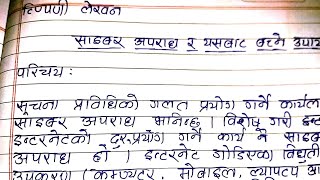 टिप्पणी लेखन
साइबर अपराध र यसबाट बच्ने उपाय
परिचय :
सूचना प्रविधिको गलत प्रयोग गर्ने कार्यल
साइबर अपराध मानिन्छ । विशेष गरी
इन्टरनेटको दुरुप्रयोग गर्ने कार्य नै साइब
अपराध हो । इन्टरनेट जोडिएका विद्युती
उपकरण ( कम्प्युटर, मोबाइल, ल्यापटप